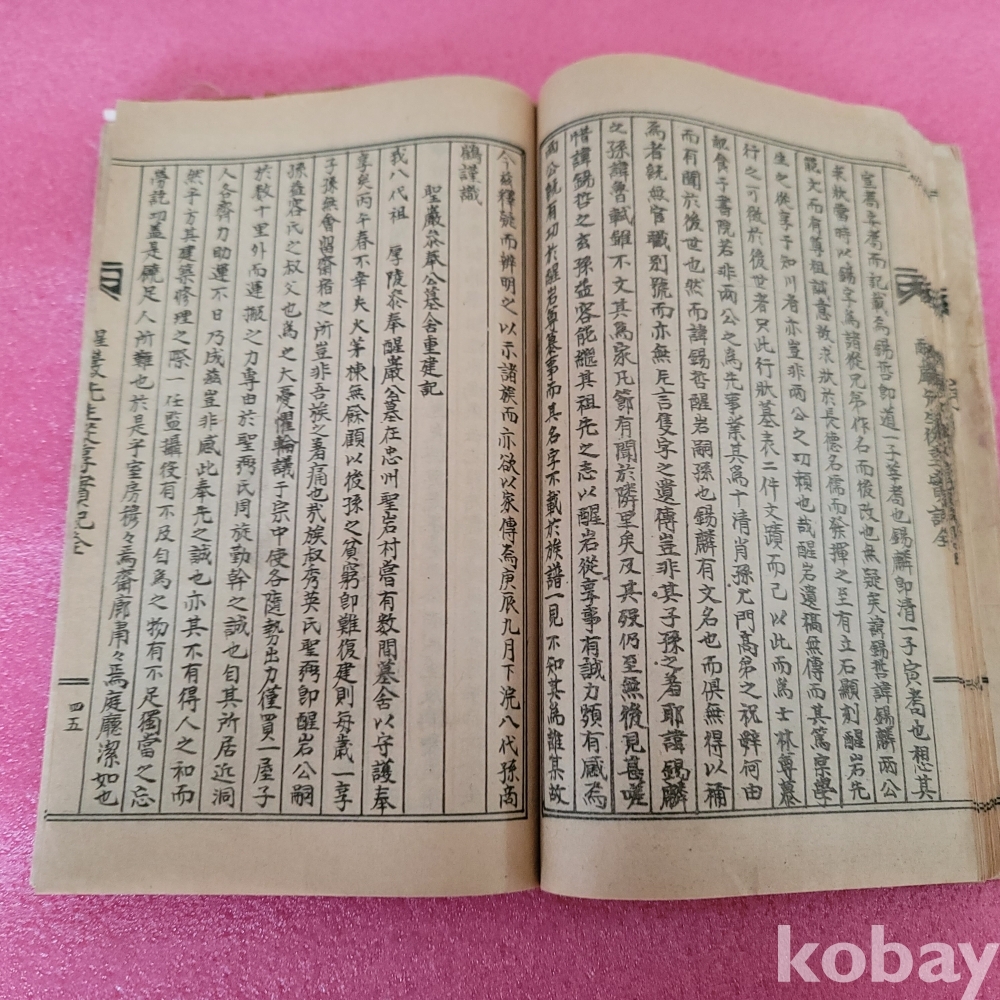 室爲孝耇而記載爲錫哲卽道一子莘耇也錫麟卽淸一子寅耇也想其
來狀當時以錫字爲諸從兄弟作名而後改也無疑矣諱錫哲諱錫麟兩公
能文而有尊祖誠意故求狀於長德名儒而發揮之至有立石顯刻醒岩先
生之從享于知川者亦豈非兩公之功賴也哉醒岩遺稿無傳而其篤宗學
行之可徵於後世者只此行狀墓表二件文蹟而已以此而爲士林尊慕
配食于書院若非兩公之爲先事業其爲十淸肖孫兄門高弟之祝辭何由
而有聞於後世也然而諱錫哲醒岩嗣孫也錫麟有文名也而俱無得以稱
爲者旣無官職別號而亦無片言隻字之遺傳豈非其子孫之著耶諱錫麟
之孫諱魯軾雖不文其爲家凡節有聞於隣里矣及其歿仍至無後見甚嗟
惜諱錫哲之玄孫益容能繼其祖先之志以醒岩從享事有誠力頗有感爲
兩公旣有功於醒岩尊慕事而其名字不載於族譜一見不知其爲誰某故
今玆釋疑而辨明之以示諸族而亦欲以家傳焉庚辰九月下浣八代孫商
鶴謹識
聖巖叅奉公墓舍重建記
我八代祖 厚陵叅奉醒巖公墓在忠州聖岩村嘗有數間墓舍以守護奉
享矣丙午春不幸失火茅棟無餘顧以後孫之貧窮卽難復建則每歲一享
子孫無會留齋宿之所豈非吾族之著痛也哉族叔秀英氏聖弼卽醒岩公嗣
孫益容氏之叔父也爲之大憂懼輪議于宗中使各隨勢出力僅買一屋子
於數十里外而運搬之力專由於聖弼氏周旋勤幹之誠也自其所居近洞
人各齊力助運不日乃成玆豈非感此奉先之誠也亦其不有得人之和而
然乎方其建築修理之際一任監攝役有不及自爲之物有不足獨當之忘
勞訖功盖是饒足人所難也於是乎室房穆々焉齋廊肅々焉庭廳潔如也
醒巖先生從享實記全
四五